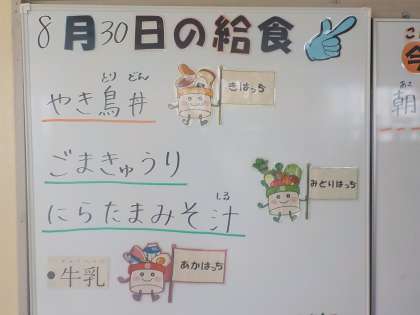 8月30日の給食
とり どん
やき鳥丼
きはっち
ごまきゅうり
みどりはっち
しる
にらたまみそ汁
牛乳
あかはっち
こ
今
あさ
朝